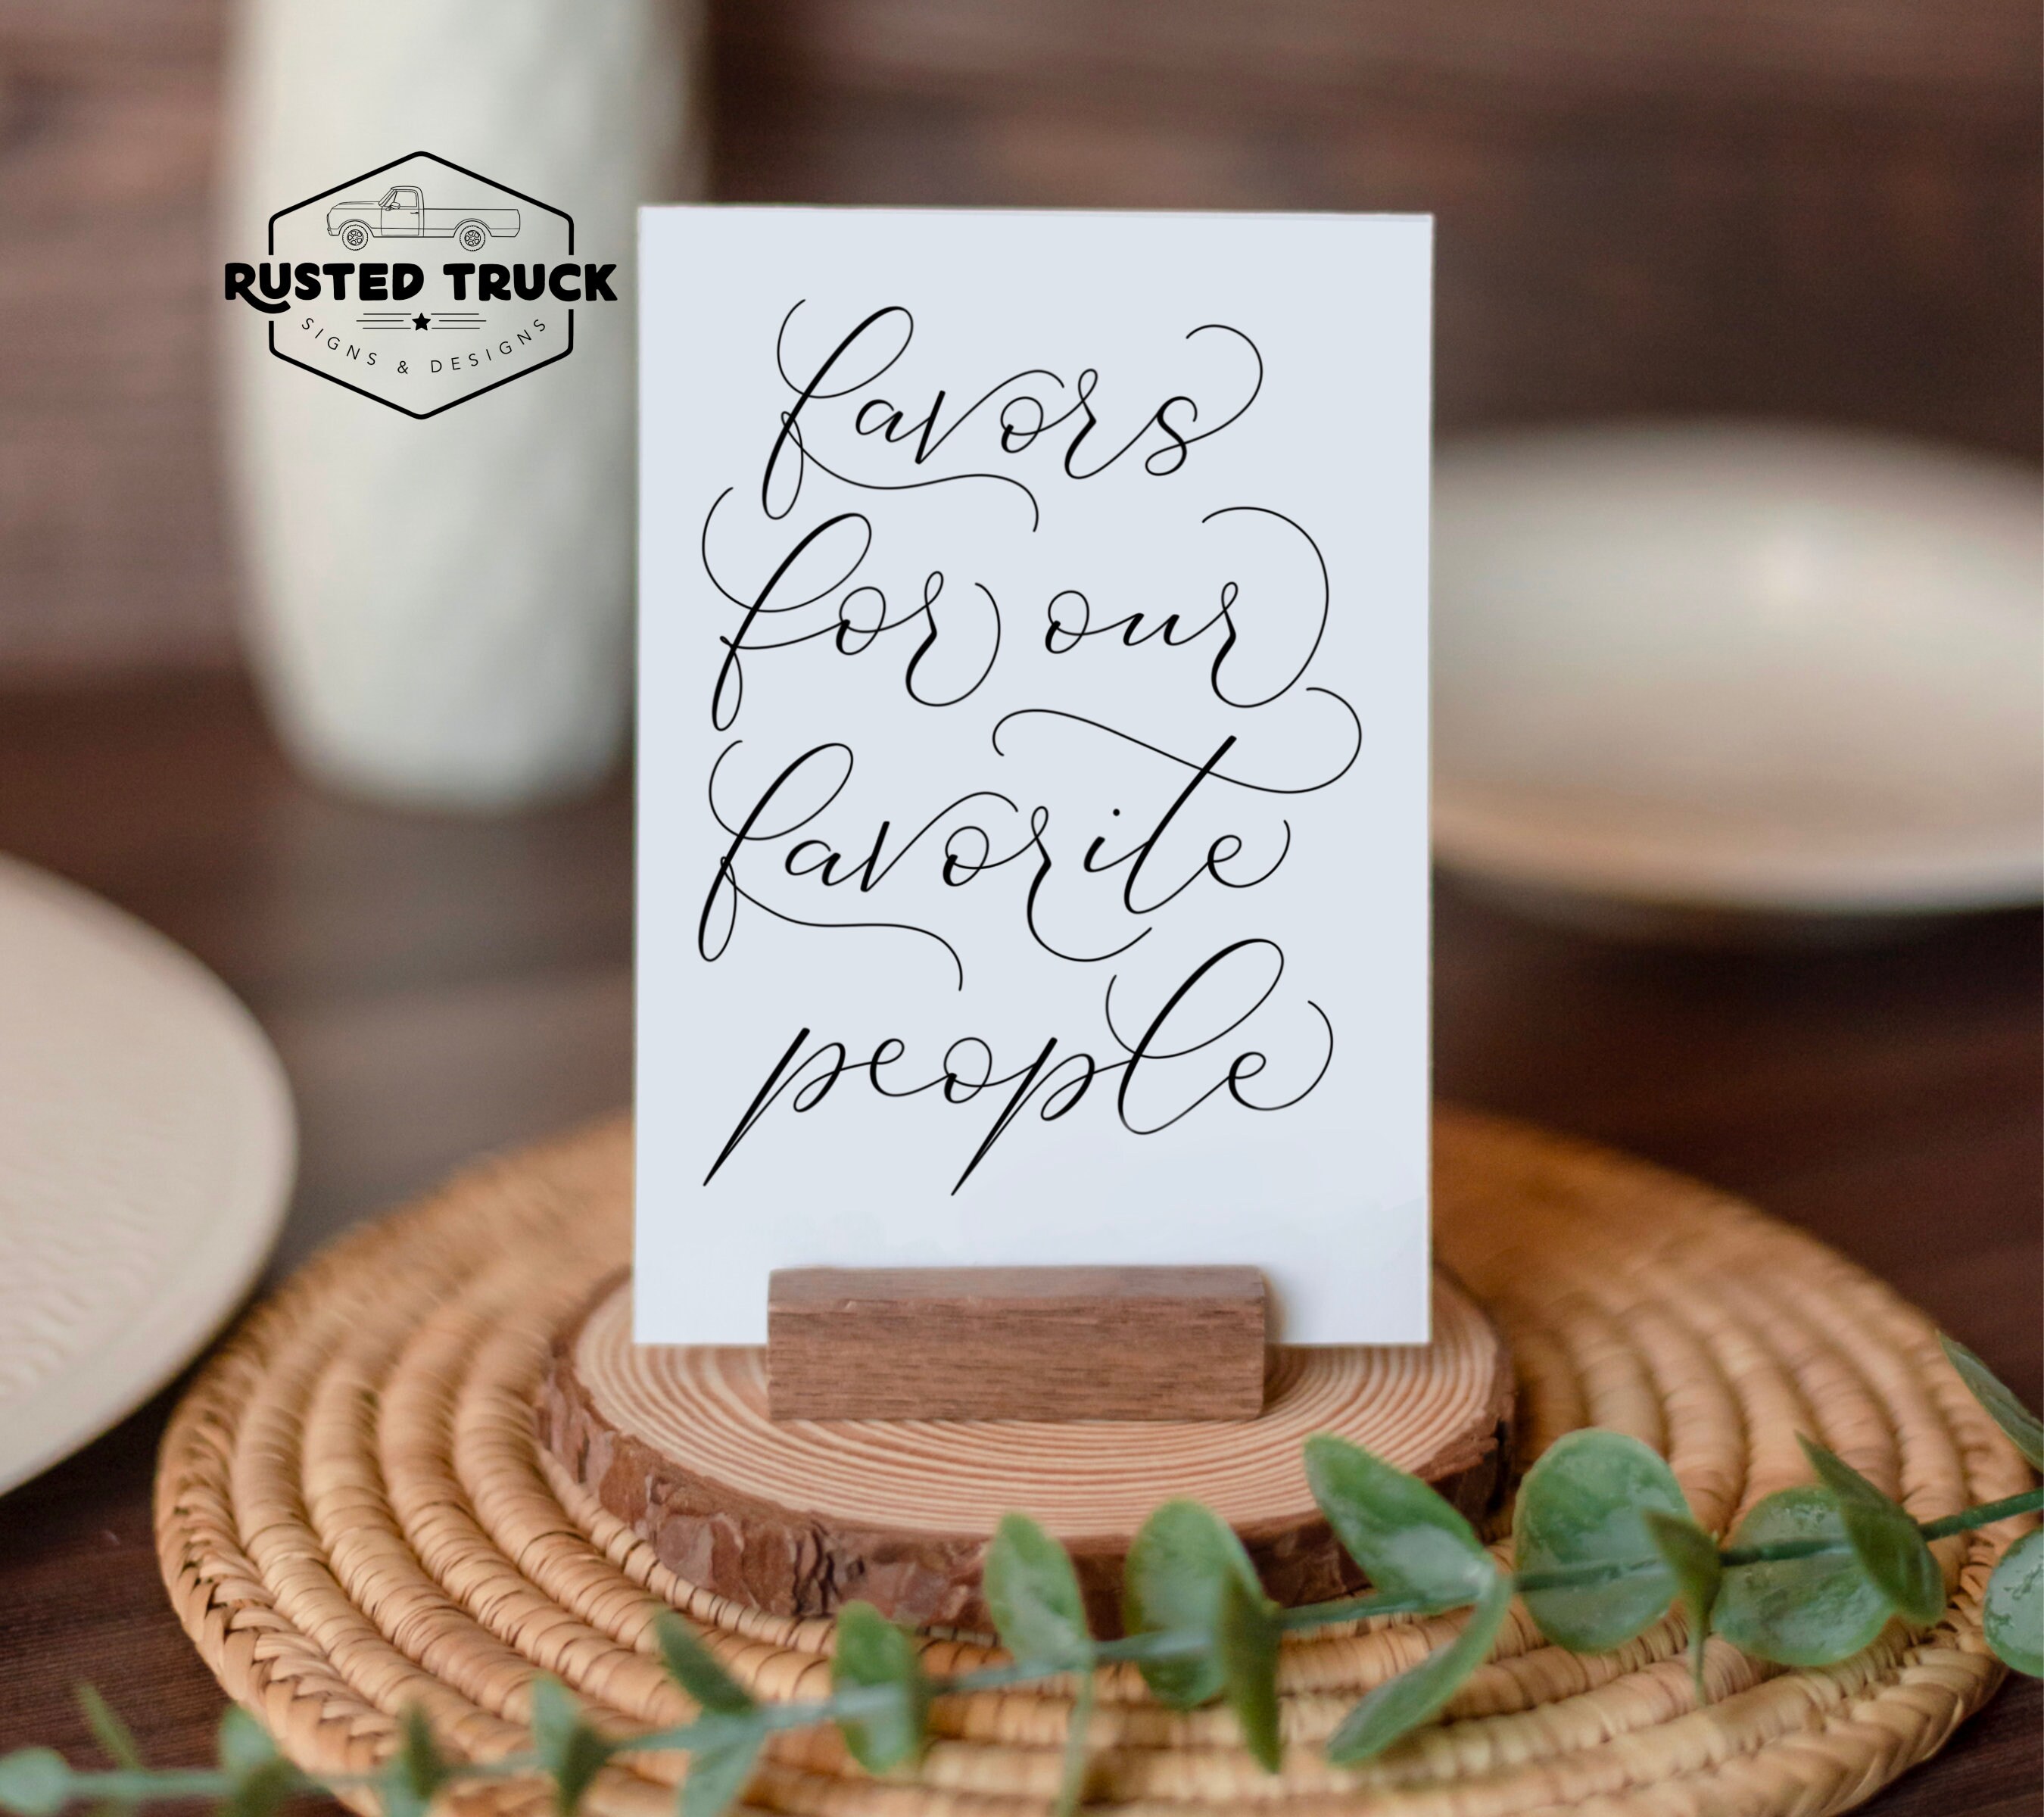 RUSTED TRUCK
SIGNS & DESIGNS
favors
for our
favorite
people